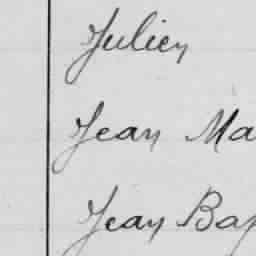 Julien
Jean Ma
Jean Bap